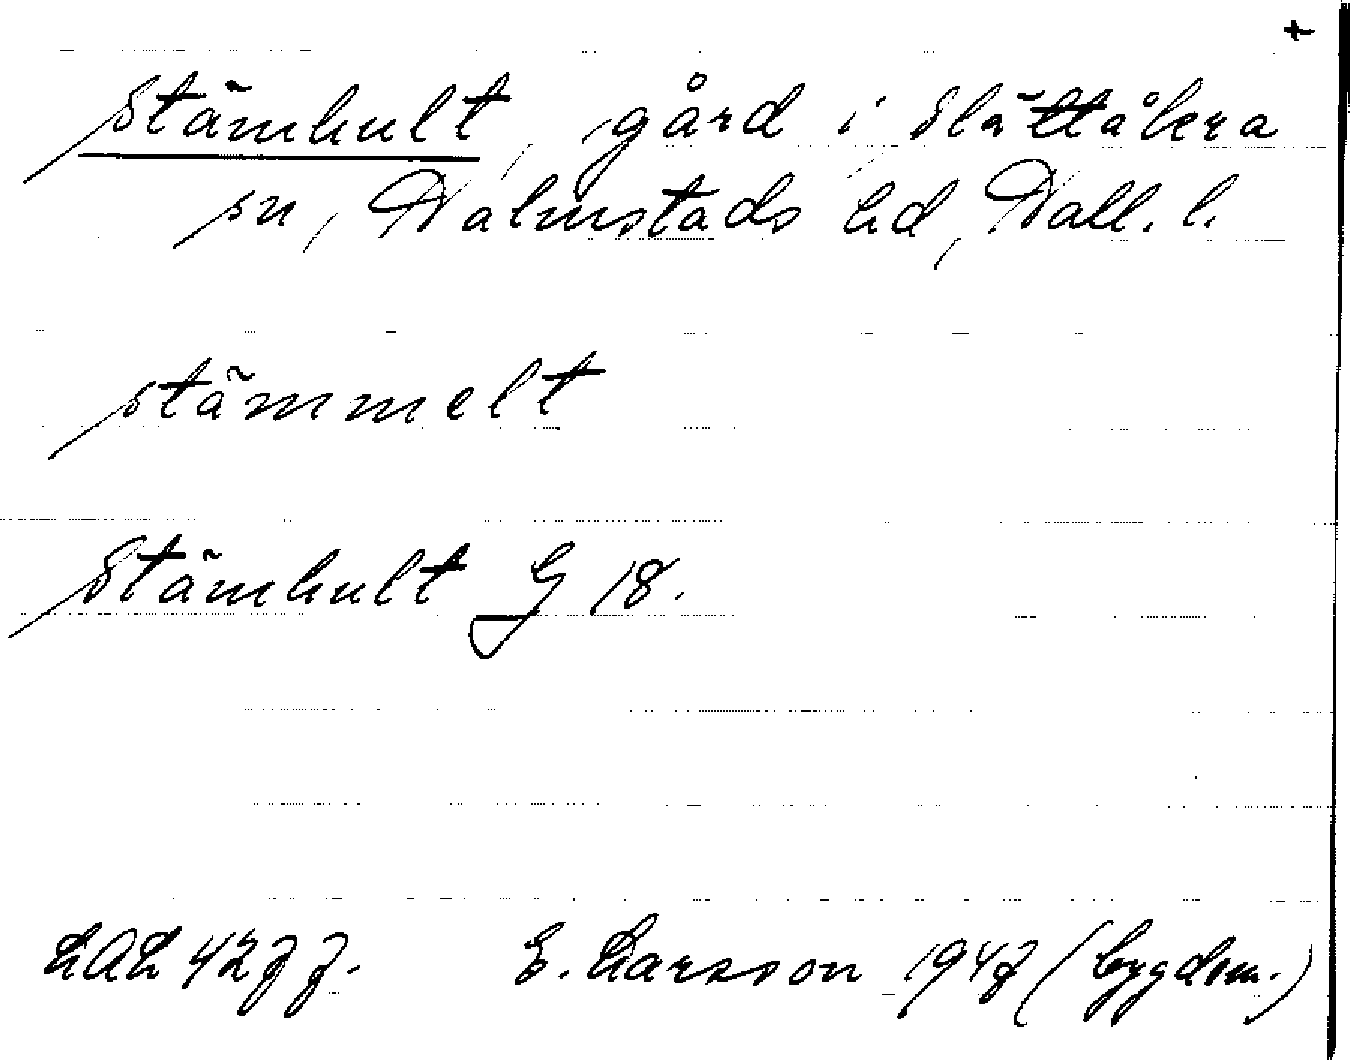 Stämhult, gård i Slättåkra
sn, Halmstads hd, Hall. l.
stämmelt
Stämhult G 18.
LAL 4277. E. Larsson 1947 (bygdem.)